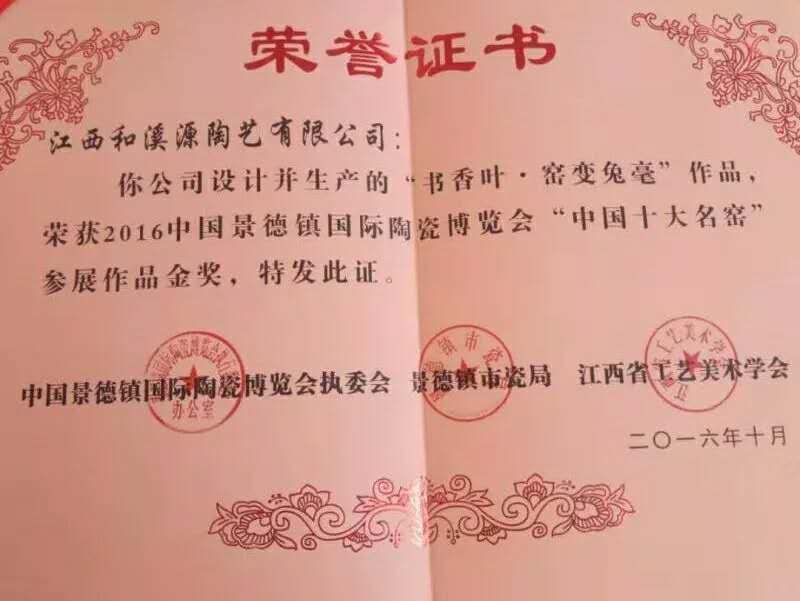 荣誉证书
江西和溪源陶艺有限公司：
你公司设计并生产的“书香叶·窑变兔毫”作品，
荣获2016中国景德镇国际陶瓷博览会“中国十大名窑”
参展作品金奖，特发此证。
中国景德镇国际陶瓷博览会执委会 景德镇市瓷局 江西省工艺美术学会
办公室
二〇一六年十月